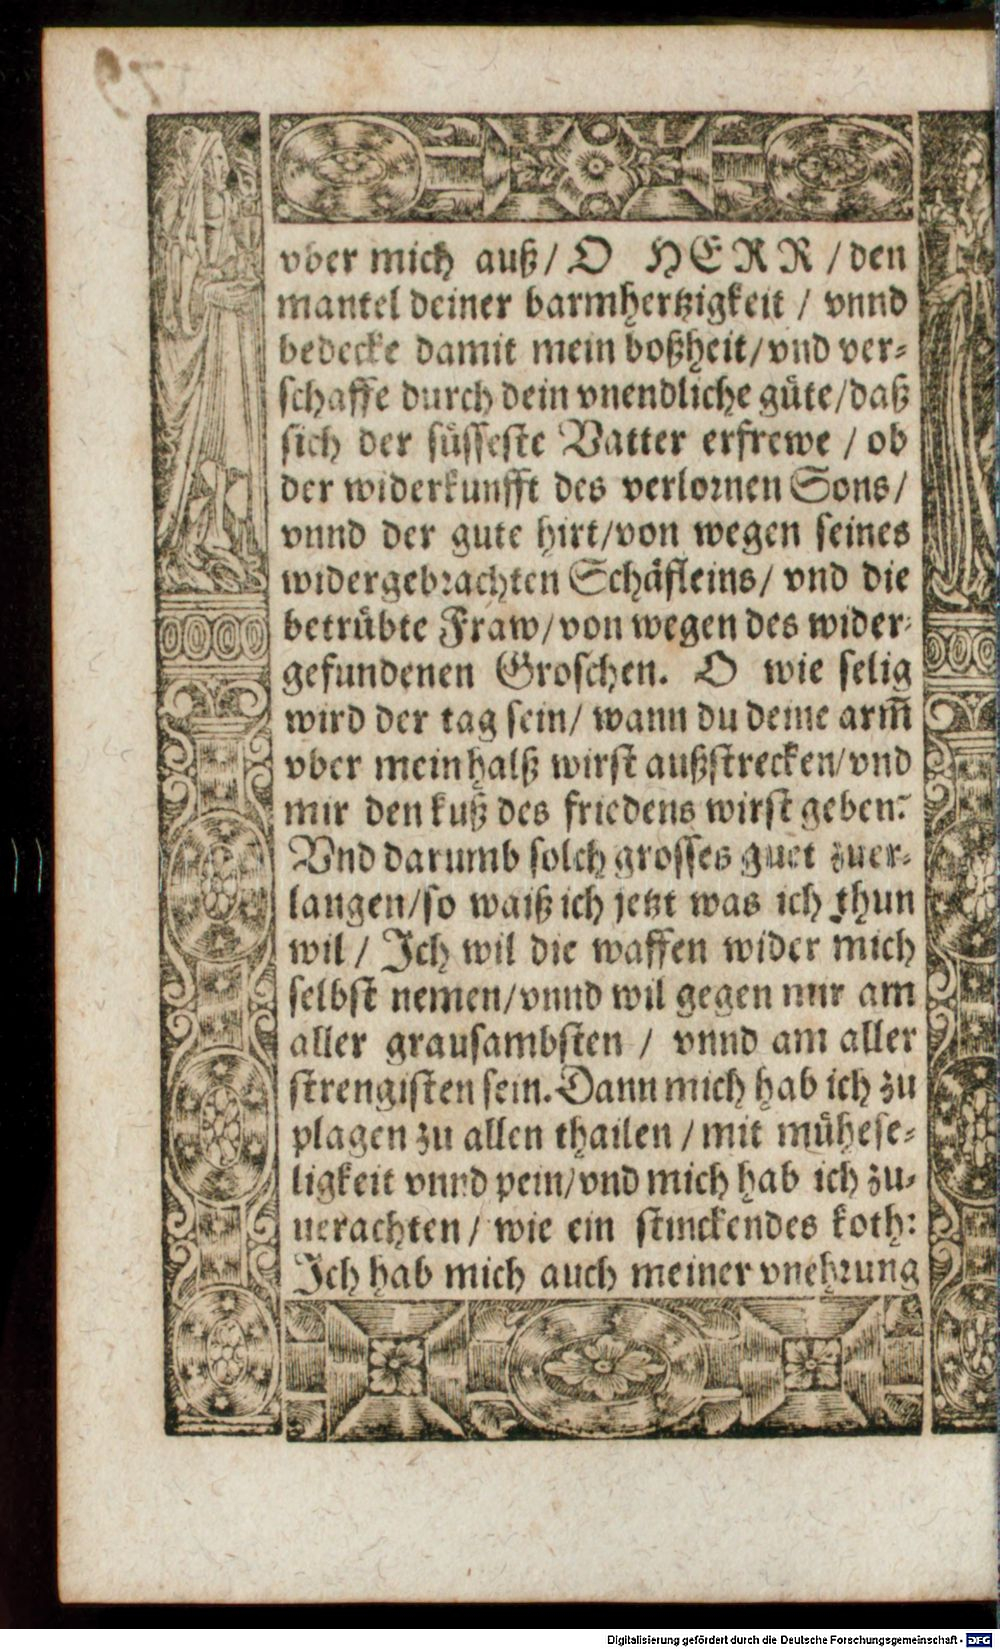 vber mich auß/ O HERR /den
mantel deiner barmhertzigkeit / vnnd
bedecke damit mein boßheit/vnd ver⸗
schaffe durch dein vnendliche güte/daß
sich der süsseste Vatter erfrewe / ob
der widerkunfft des verlornen Sons/
vnnd der gute hirt/von wegen seines
widergebrachten Schäfleins/ vnd die
betrübte Fraw/von wegen des wider⸗
gefundenen Groschen. O wie selig
wird der tag sein/ wann du deine arm̃
vber mein halß wirst außstrecken/vnd
mir den kuß des friedens wirst geben?
Vnd darumb solch grosses guet zuer⸗
langen/so waiß ich jetzt was ich thun
wil / Ich wil die waffen wider mich
selbst nemen/vnnd wil gegen mir am
aller grausambsten / vnnd am aller
strengisten sein. Dann mich hab ich zu
plagen zu allen thailen /mit mühese⸗
ligkeit vnnd pein/vnd mich hab ich zu⸗
uerachten/ wie ein stinckendes koth:
Ich hab mich auch meiner vnehrung
Digitalisierung gefördert durch die Deutsche Forschungsgemeinschaft - DFG